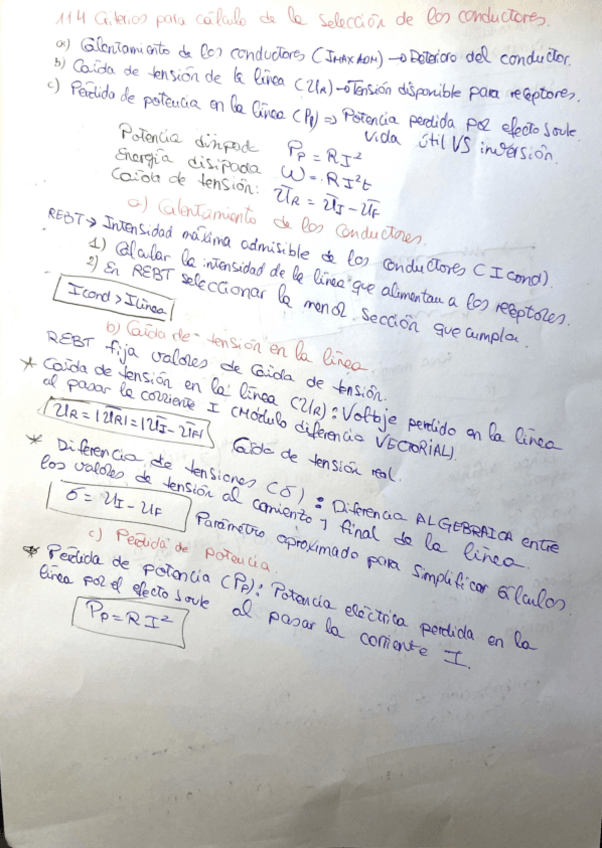 11.4 Criterios para cálculo de la selección de los conductores.
a) Calentamiento de los conductores (IMAX ADM) → Deterioro del conductor.
b) Caída de tensión de la línea (UR) → Tensión disponible para receptores.
c) Pérdida de potencia en la línea (Pp) ⇒ Potencia perdida por efecto Joule.
vida útil VS inversión.
Potencia Pp = RI²
Energía disipada W = RI²t
Caída de tensión: U̅R = U̅I - U̅F
a) Calentamiento de los conductores.
REBT → Intensidad máxima admisible de los conductores (Icond).
1) Calcular la intensidad de la línea que alimentan a los receptores.
2) En REBT seleccionar la menor sección que cumpla.
Icond > Ilínea
b) Caída de tensión en la línea.
REBT fija valores de caída de tensión.
* Caída de tensión en la línea (UR): Voltaje perdido en la línea
al pasar la corriente I (Módulo diferencia VECTORIAL).
UR = |U̅R| = |U̅I - U̅F| Caída de tensión real.
* Diferencia de tensiones (δ): Diferencia ALGEBRAICA entre
los valores de tensión al comienzo y final de la línea.
δ = UI - UF Parámetro aproximado para simplificar cálculos.
c) Pérdida de potencia.
* Pérdida de potencia (Pp): Potencia eléctrica perdida en la
línea por el efecto Joule al pasar la corriente I.
Pp = RI²